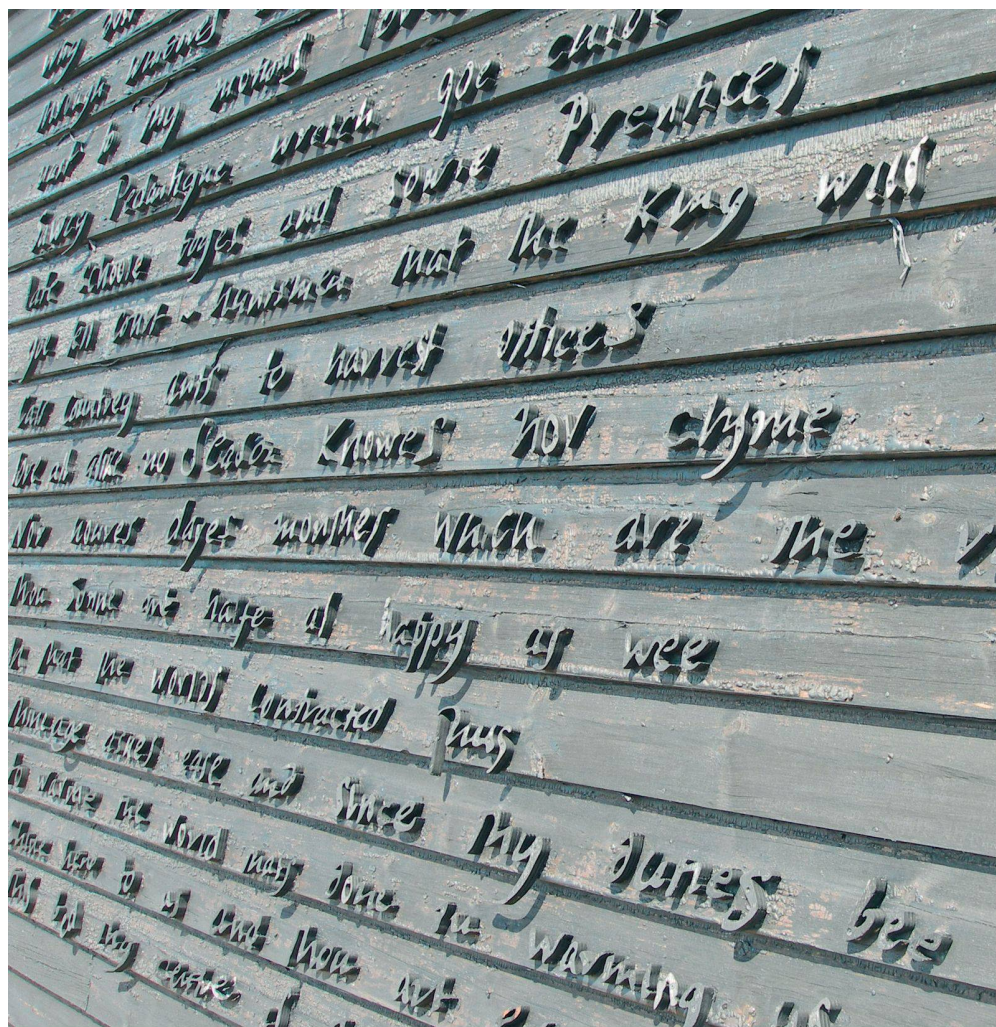 why
through windows
must to thy motions
Sawcy Pedantique wretch goe chide
late schoole boyes and sowre Prentices
goe tell court-huntsmen that the King will
call countrey ants to harvest offices
love all alike no Season knowes nor clyme
Nor houres dayes months which are the
Thou Sunne art halfe as happy as wee
In that the worlds contracted thus
Thine age askes ease and since thy duties bee
to warme the world thats done in warming us
Shine here to us and thou art
This bed thy center